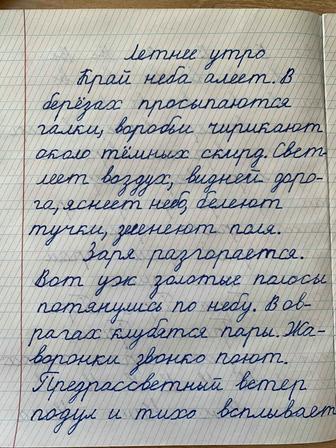 Летнее утро
Край неба алеет. В
берёзах просыпаются
галки, воробьи чирикают
около тёмных скирд. Свет-
леет воздух, видней доро-
га, яснеет небо, белеют
тучки, зеленеют поля.
Заря разгорается.
Вот уж золотые полосы
потянулись по небу. В ов-
рагах клубятся пары. Жа-
воронки звонко поют.
Предрассветный ветер
подул и тихо всплывает